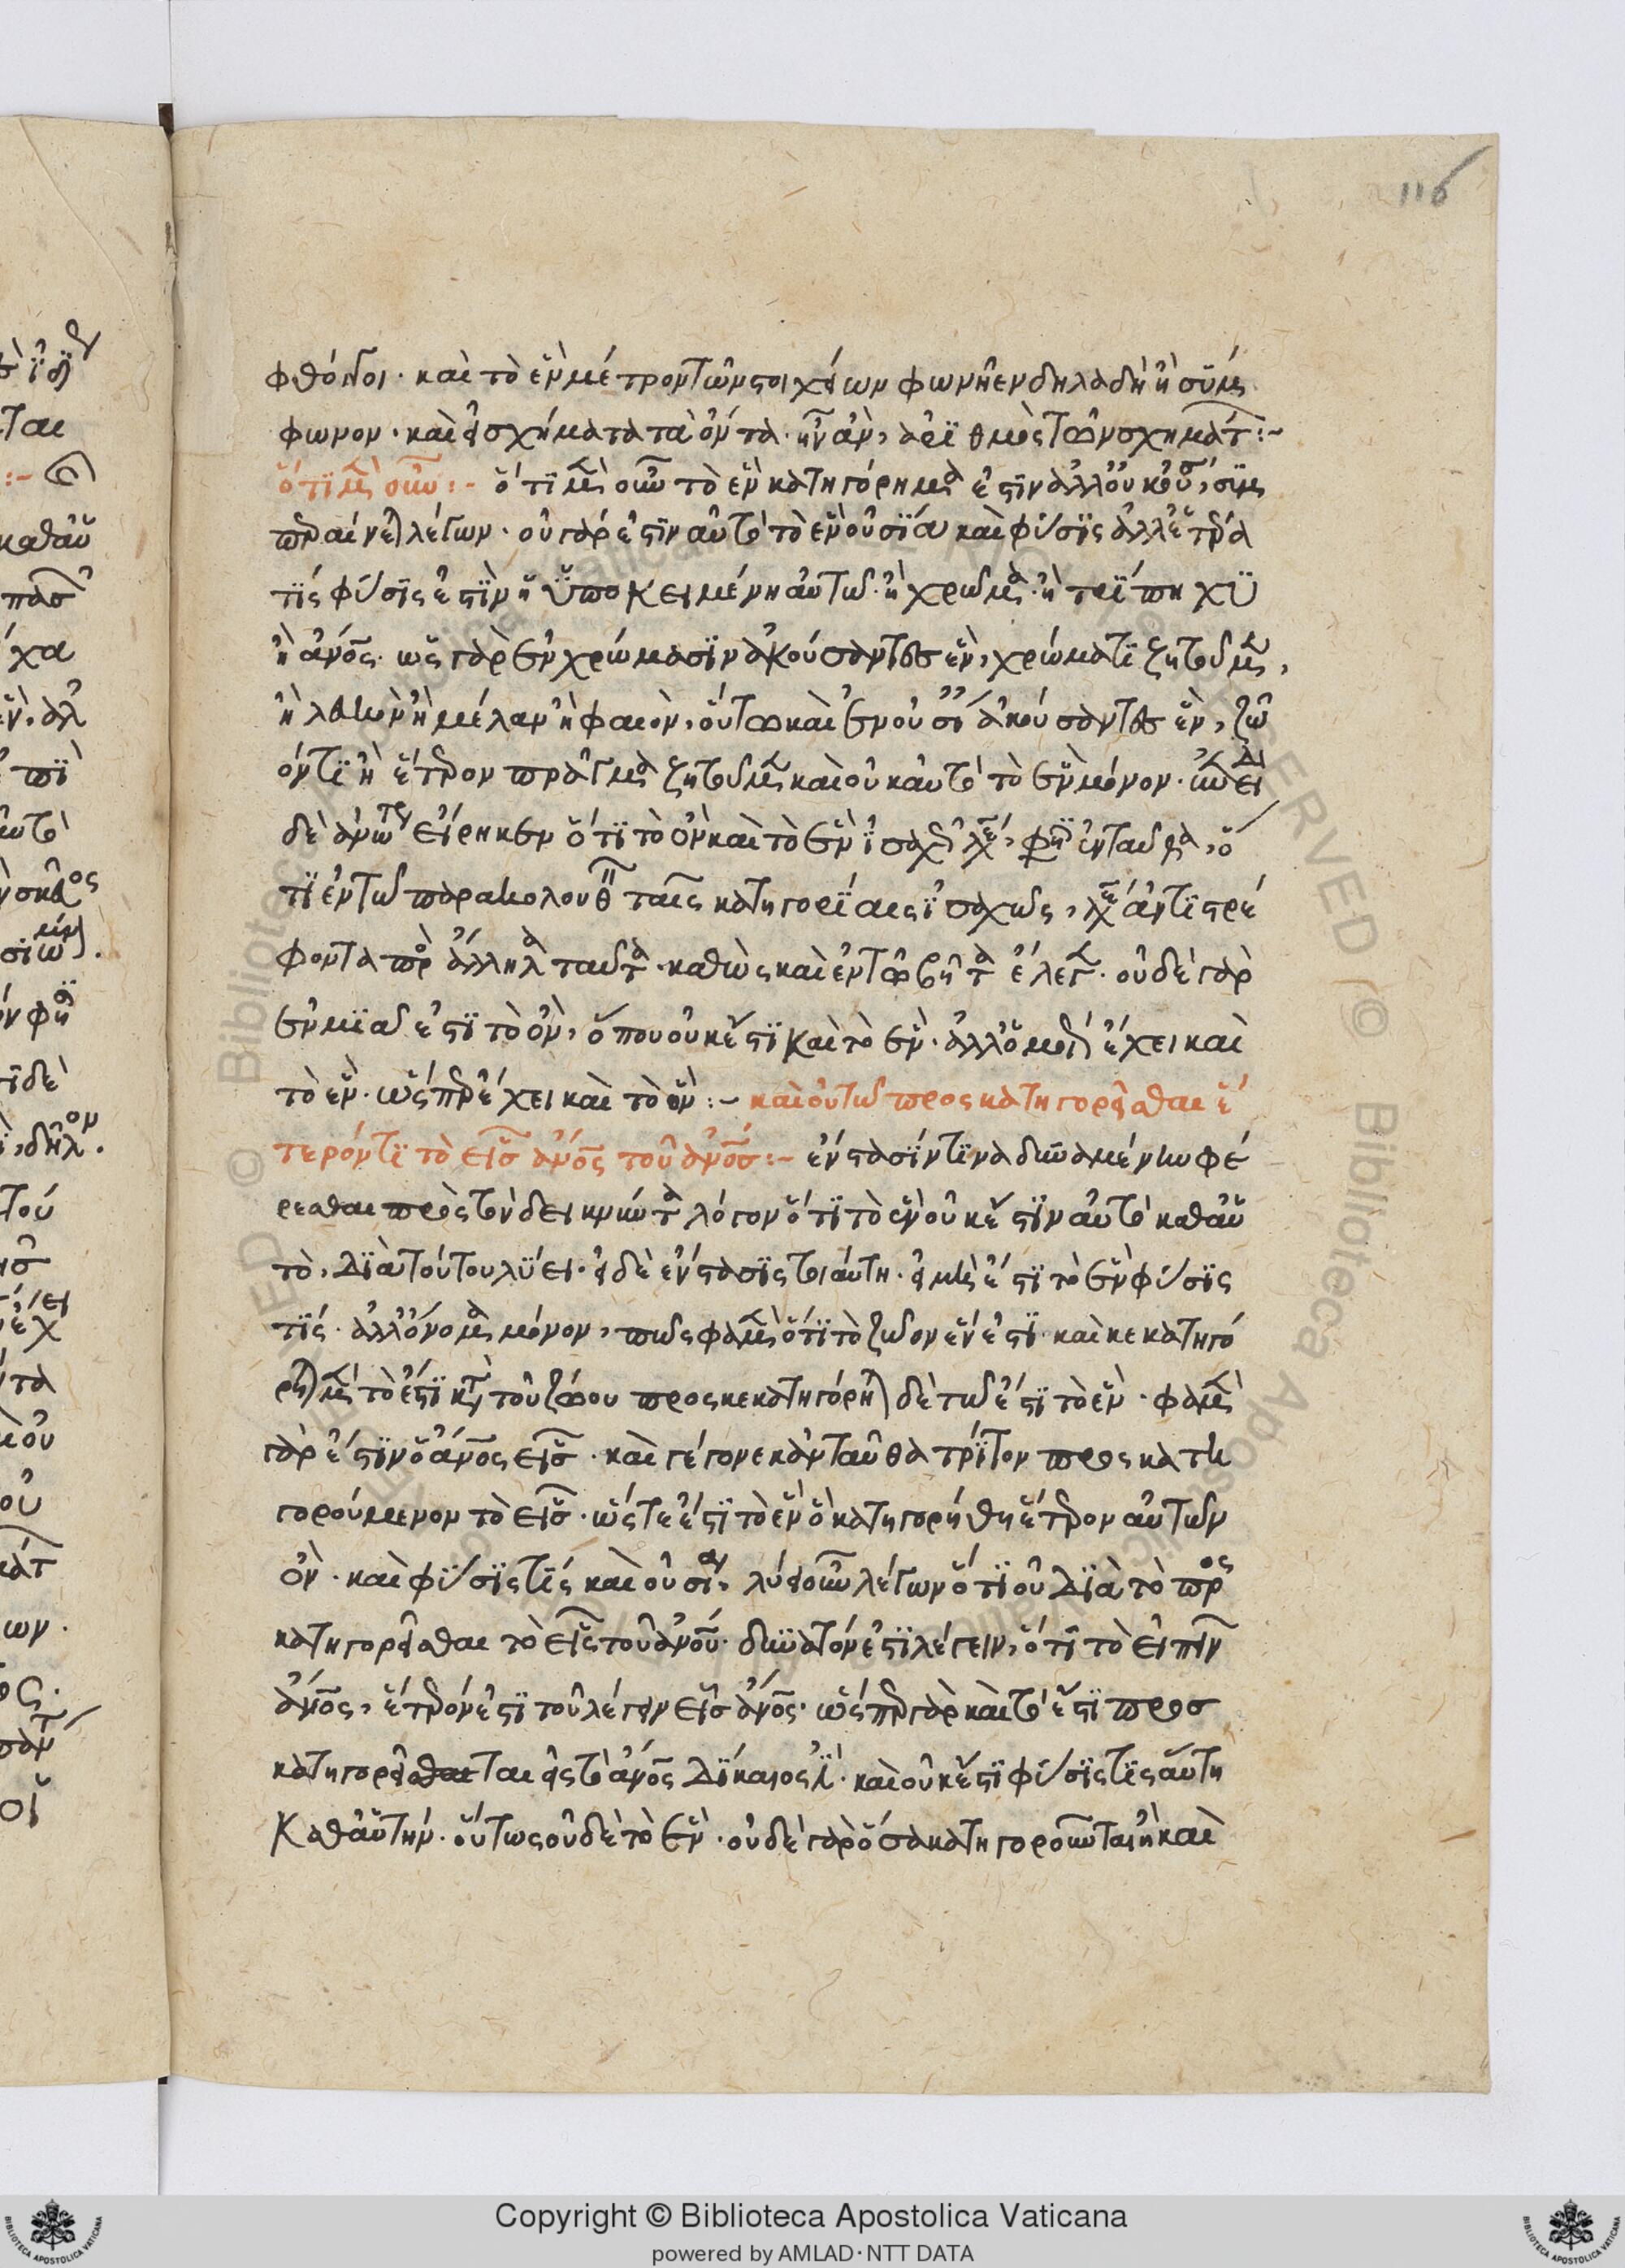 116
φθόγγοι· καὶ τὸ ἓν μέτρον τῶν στοιχείων φωνῆεν δηλαδὴ ἢ σύμ
φωνον· καὶ εἰ σχήματα τὰ ὄντα· ἦν ἂν, ἀρϊθμὸς τῶν σχημάτ:~
ὅτϊ μὲν οὖν:~ ὅτϊ μὲν οὖν τὸ ἓν κατηγόρημα ἐστὶν ἀλλ' οὐκ οὐσί, συμ
περαίνε λέγων· οὐ γάρ ἐστιν αὐτὸ τὸ ἓν οὐσία καὶ φύσϊς ἀλλ' ἑτέρα
τίς φύσϊς ἐστὶν ἡ ὑποκειμένη αὐτῶ· ἢ χρῶμα· ἢ τρίπηχϋ
ἢ ἄνος· ὡς γὰρ ἐν χρώμασϊν ἀκούσαντες ἓν, χρώματϊ ζητοῦμεν,
ἢ λευκὸν ἢ μέλαν ἢ φαιὸν, οὕτω καὶ ἐν οὐσί ἀκούσαντες ἓν, ζῶ
όν τϊ ἢ ἕτερον πρᾶγμα ζητοῦμεν καὶ οὐκ αὐτὸ τὸ ἓν μόνον·
δὲ ἀνωτ εἴρηκεν ὅτϊ τὸ ὂν καὶ τὸ ἓν ἰσαχ λέγε, φησὶν ἐνταῦθα, ὅ
τϊ ἐν τῶ παρακολουθ ταῖς κατηγορίαις ἰσαχῶς, λέγε ἀντϊστρέ
φοντα πρὸ ἄλληλα ταῦτα· καθὼς καὶ ἐν τῶ βητα ἔλεγ· οὐδὲ γὰρ
ἐν μϊᾶ ἐστὶ τὸ ὂν, ὅπου οὐκ ἔστϊ καὶ τὸ ἓν· ἀλλ' ὁμοί ἔχει καὶ
τὸ ἓν· ὥσπερ ἔχει καὶ τὸ ὂν:~ καὶ οὑτῶ προςκατηγορεῖσθαι ἕ
τερόν τϊ τὸ εἷς ἄνος τοῦ ἄνος:~ ἔνστασϊν τϊνα δυναμένην φέ
ρεσθαι πρὸς τὸν δεικνύντα λόγον ὅτϊ τὸ ἓν οὐκ ἔστϊν αὐτὸ καθαὑ
τὸ, δϊὰ τούτου λύει· ἡ δὲ ἔνστασϊς τοιαύτη· εἰ μή ἐστϊ τὸ ἓν φύσϊς
τϊς· ἀλλ' ὄνομα μόνον, πῶς φαμὲν ὅτϊ τὸ ζῶον ἕν ἐστϊ· καὶ κεκατηγό
ρη μὲν τὸ ἔστϊ κτ τοῦ ζώου προςκεκατηγόρη δὲ τῶ ἔστϊ τὸ ἓν· φαμὲν
γὰρ ἔστϊν ὁ ἄνος εἷς· καὶ γέγονε κἀνταῦθα τρίτον προςκατη
γορούμενον τὸ εἷς· ὥστε ἔστϊ τὸ ἓν ὃ κατηγορήθη ἕτερον αὐτῶν
ὂν· καὶ φύσϊς τϊς καὶ οὐσία, λύει οὖν λέγων ὅτϊ οὐ δϊὰ τὸ προς
κατηγορεῖσθαι τὸ εἷς τοῦ ἄνου· δυνατόν ἐστϊ λέγειν, ὅτι τὸ εἰπεῖν
ἄνος, ἕτερόν ἐστϊ τοῦ λέγειν εἷς ἄνος· ὥσπερ γὰρ καὶ τὸ ἔστϊ προσ
κατηγορεῖται εἰς τὸ ἄνος δίκαιος ἐστὶ· καὶ οὐκ ἔστϊ φύσϊς τϊς αὕτη
καθαὑτήν· οὕτως οὐδὲ τὸ ἓν· οὐδὲ γὰρ ὅσα κατηγοροῦνται ἢ καὶ
Copyright © Biblioteca Apostolica Vaticana
powered by AMLAD·NTT DATA